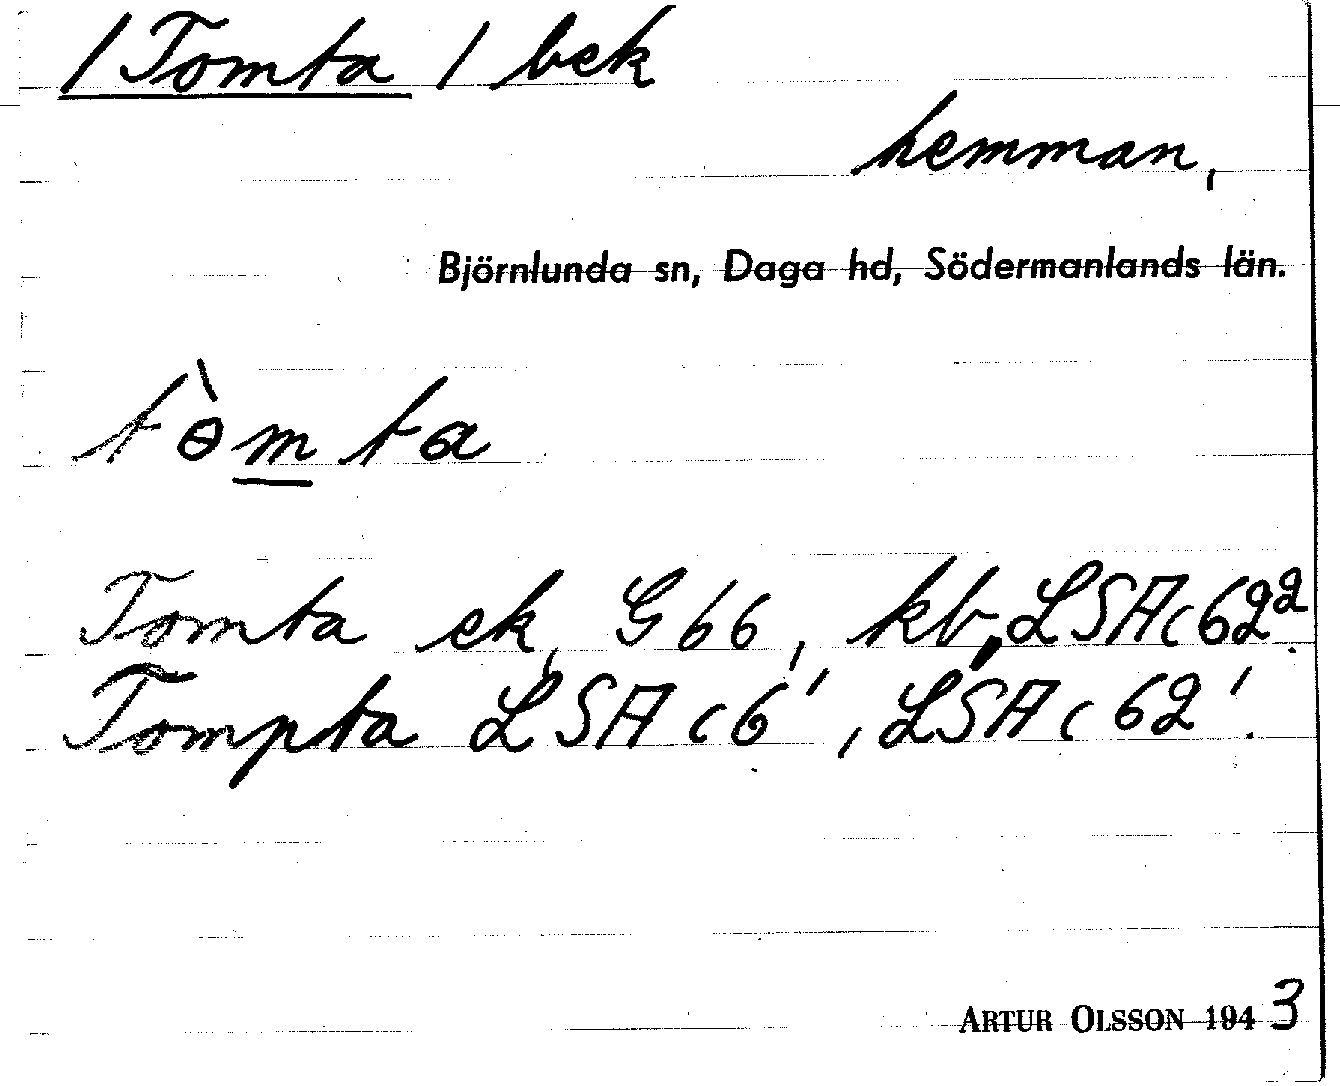 /Tomta / bek
hemman,
Björnlunda sn, Daga hd, Södermanlands län.
tɵ̀m̲ta
Tomta ek, G 66, kb, LSA c 62²
Tompta LSA c6¹, LSA c 62¹.
ARTUR OLSSON 1943